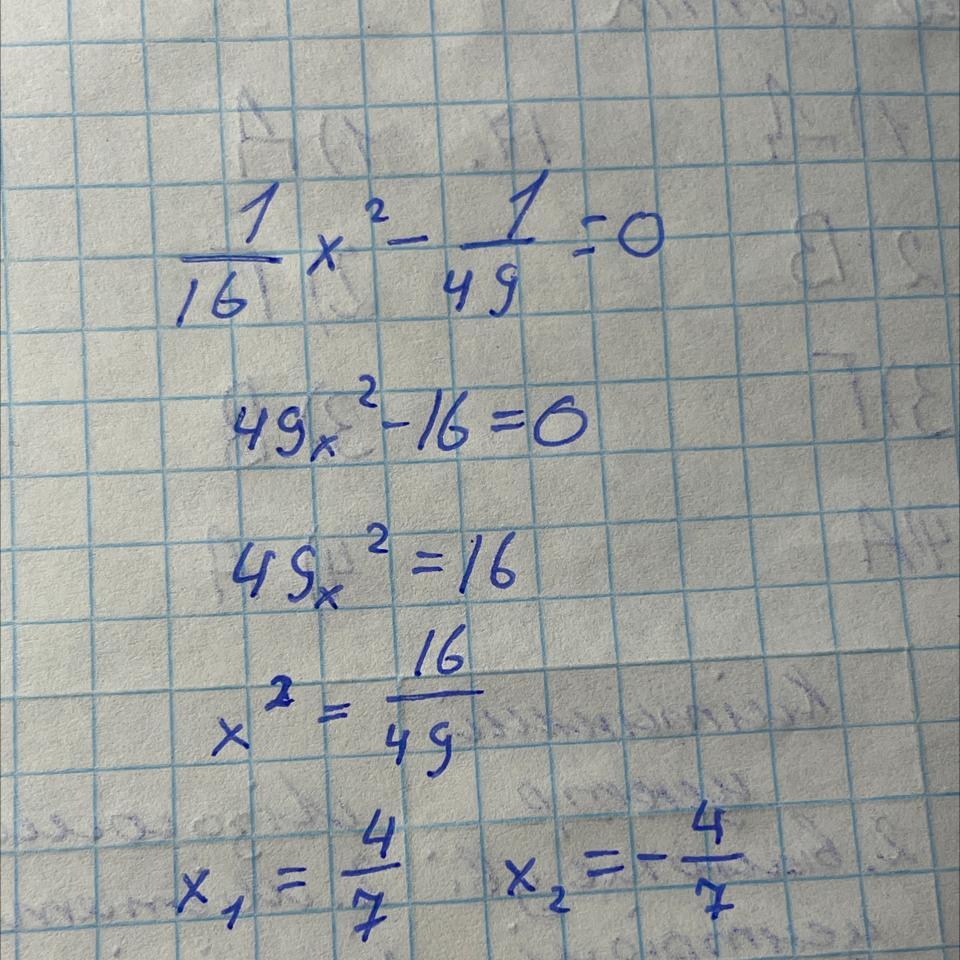 1/16 x² - 1/49 = 0
49x² - 16 = 0
49x² = 16
x² = 16/49
x₁ = 4/7 x₂ = -4/7